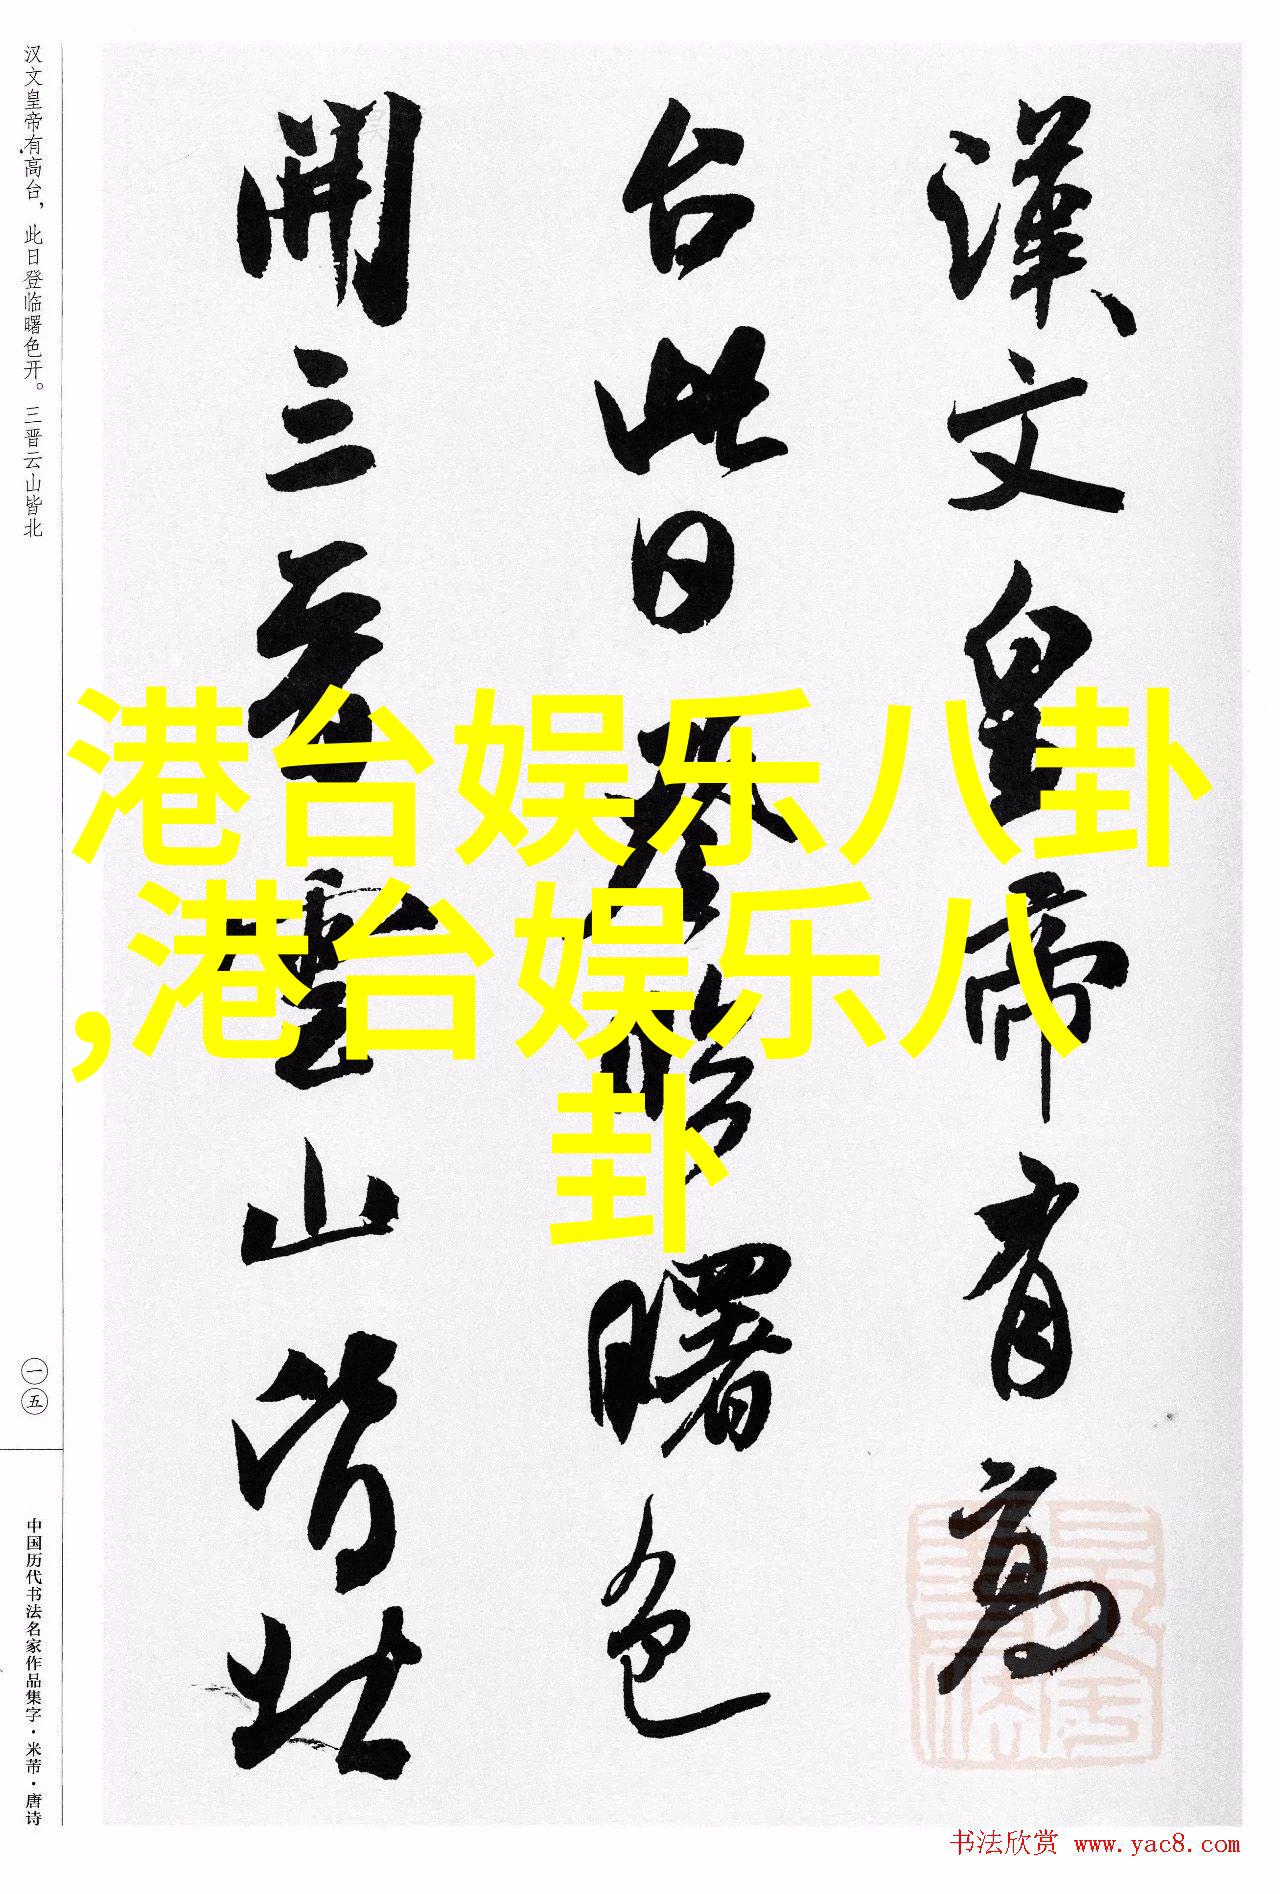 漢文皇帝有高
台此日登臨曙色
開三晋雲山皆北
汉文皇帝有高台，此日登临曙色开。三晋云山皆北
一五
中国历代书法名家作品集字·米芾·唐诗
港台娱乐八卦
,港台娱乐八
卦
书法欣赏 www.yac8.com